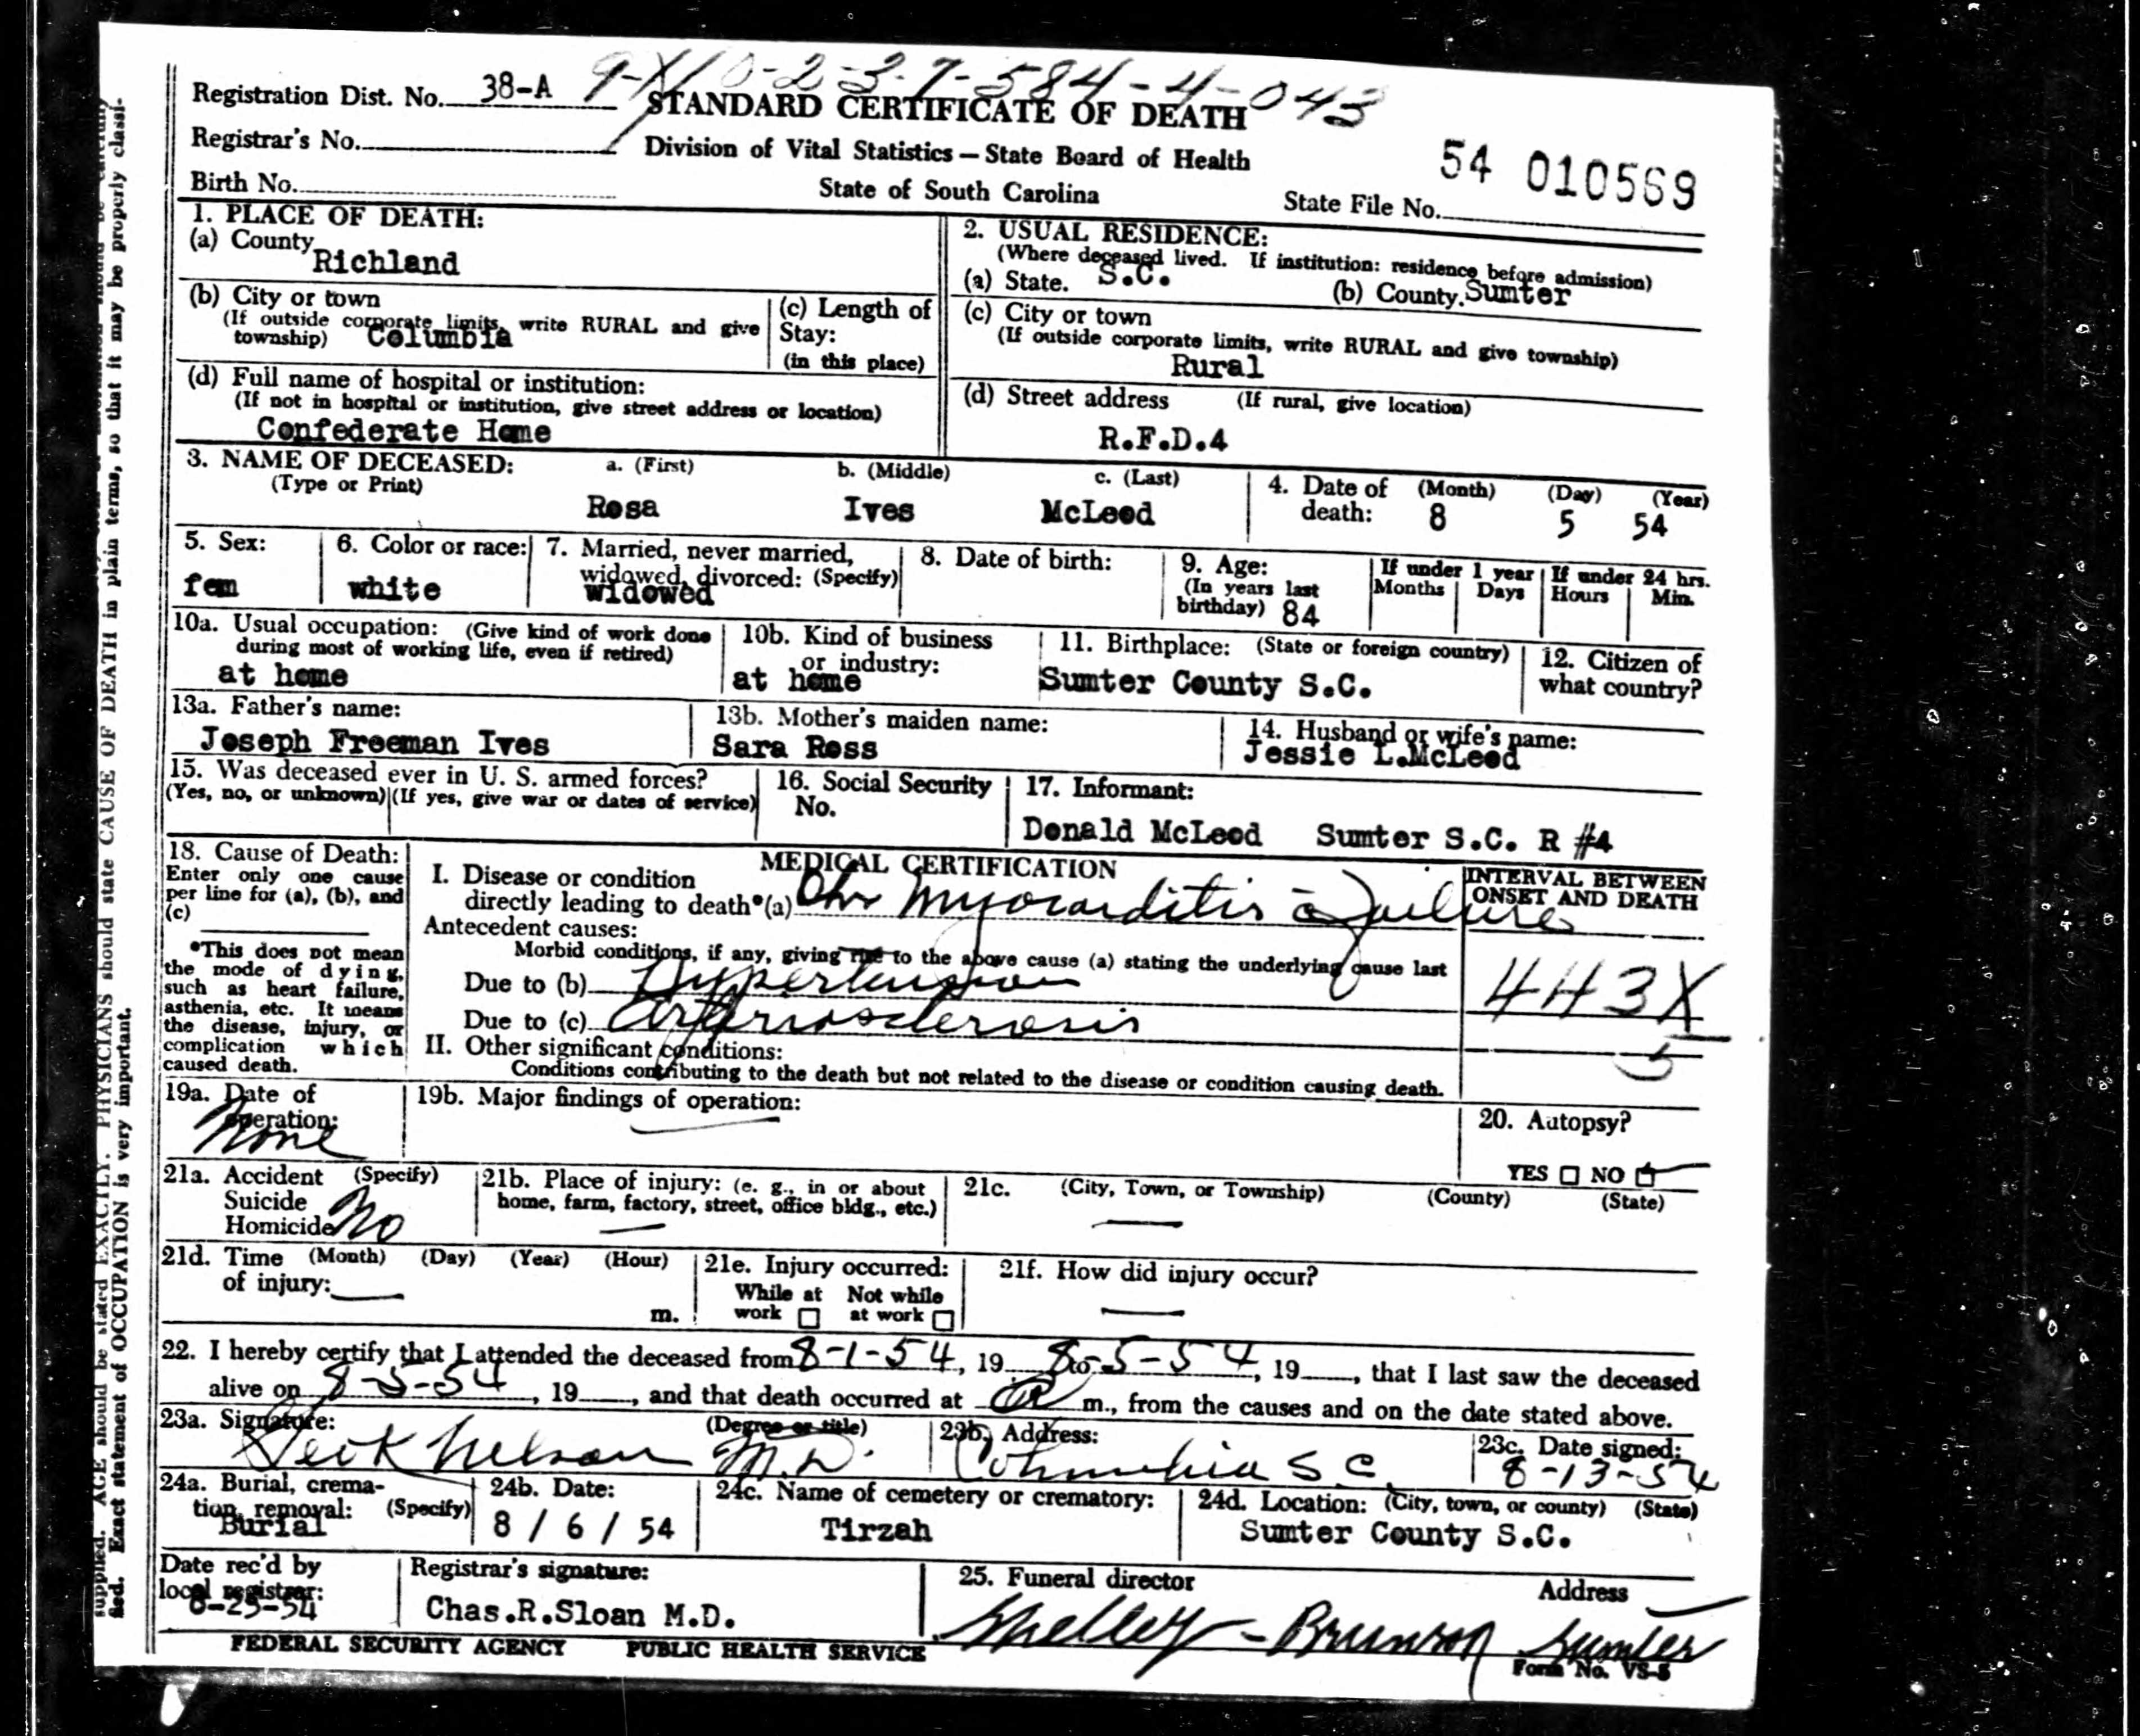 9-X/0-2-3-7-584-4-043
Registration Dist. No. 38-A
STANDARD CERTIFICATE OF DEATH
Registrar's No.
Division of Vital Statistics — State Board of Health
54 010569
Birth No.
State of South Carolina
State File No.
1. PLACE OF DEATH:
(a) County
Richland
(b) City or town
(If outside corporate limits, write RURAL and give township)
Columbia
(c) Length of Stay:
(in this place)
(d) Full name of hospital or institution:
(If not in hospital or institution, give street address or location)
Confederate Home
2. USUAL RESIDENCE:
(Where deceased lived. If institution: residence before admission)
(a) State. S.C.
(b) County. Sumter
(c) City or town
(If outside corporate limits, write RURAL and give township)
Rural
(d) Street address (If rural, give location)
R.F.D.4
3. NAME OF DECEASED:
(Type or Print)
a. (First) b. (Middle) c. (Last)
Rosa Ives McLeod
4. Date of death: (Month) (Day) (Year)
8 5 54
5. Sex:
fem
6. Color or race:
white
7. Married, never married,
widowed, divorced: (Specify)
widowed
8. Date of birth:
9. Age:
(In years last
birthday) 84
If under 1 year
Months Days
If under 24 hrs.
Hours Min.
10a. Usual occupation: (Give kind of work done
during most of working life, even if retired)
at home
10b. Kind of business
or industry:
at home
11. Birthplace: (State or foreign country)
Sumter County S.C.
12. Citizen of
what country?
13a. Father's name:
Joseph Freeman Ives
13b. Mother's maiden name:
Sara Ross
14. Husband or wife's name:
Jessie L.McLeod
15. Was deceased ever in U. S. armed forces?
(Yes, no, or unknown) (If yes, give war or dates of service)
16. Social Security
No.
17. Informant:
Donald McLeod Sumter S.C. R #4
18. Cause of Death:
Enter only one cause
per line for (a), (b), and
(c)
*This does not mean
the mode of dying,
such as heart failure,
asthenia, etc. It means
the disease, injury, or
complication which
caused death.
MEDICAL CERTIFICATION
I. Disease or condition
directly leading to death*(a) Chr Myocarditis c̄ Failure
Antecedent causes:
Morbid conditions, if any, giving rise to the above cause (a) stating the underlying cause last
Due to (b) Hypertension
Due to (c) Arteriosclerosis
II. Other significant conditions:
Conditions contributing to the death but not related to the disease or condition causing death.
INTERVAL BETWEEN
ONSET AND DEATH
443X
5
19a. Date of
operation:
None
19b. Major findings of operation:
20. Autopsy?
YES NO
21a. Accident (Specify)
Suicide
Homicide No
21b. Place of injury: (e. g., in or about
home, farm, factory, street, office bldg., etc.)
21c. (City, Town, or Township) (County) (State)
21d. Time (Month) (Day) (Year) (Hour)
of injury:
m.
21e. Injury occurred:
While at Not while
work at work
21f. How did injury occur?
22. I hereby certify that I attended the deceased from 8-1-54, 19 to 8-5-54, 19, that I last saw the deceased
alive on 8-5-54, 19, and that death occurred at a m., from the causes and on the date stated above.
23a. Signature: (Degree or title)
Nelson M.D.
23b. Address:
Columbia S C
23c. Date signed:
8-13-54
24a. Burial, crema-
tion, removal: (Specify)
Burial
24b. Date:
8 / 6 / 54
24c. Name of cemetery or crematory:
Tirzah
24d. Location: (City, town, or county) (State)
Sumter County S.C.
Date rec'd by
local registrar:
8-23-54
Registrar's signature:
Chas.R.Sloan M.D.
25. Funeral director Address
Shelley - Brunson Sumter
FEDERAL SECURITY AGENCY PUBLIC HEALTH SERVICE
Form No. VS-5
supplied. AGE should be stated EXACTLY. PHYSICIANS should state CAUSE OF DEATH in plain terms, so that it may be properly classi-
fied. Exact statement of OCCUPATION is very important.